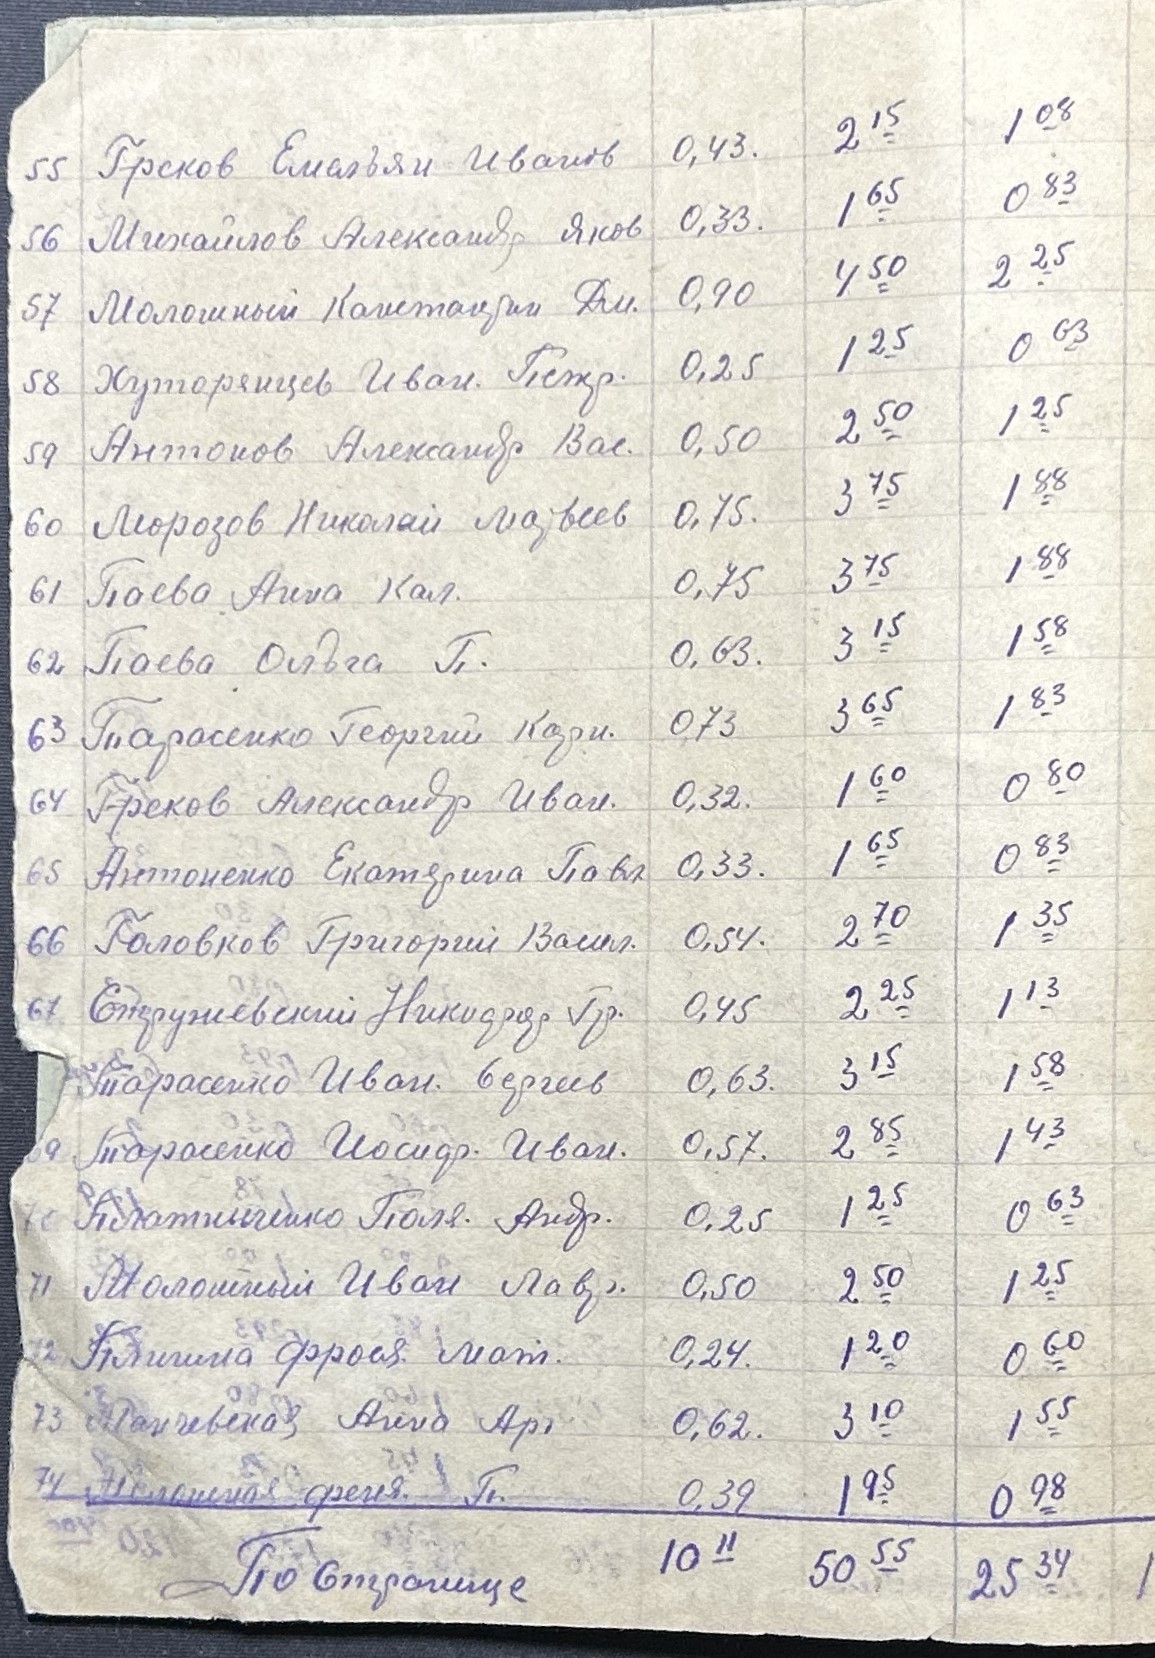 55 Греков Емельян Иванов 0,43. 2 15 1 08
56 Михайлов Александр Яков 0,33. 1 65 0 83
57 Молошный Канстантин Дм. 0,90 4 50 2 25
58 Хуторянцев Иван. Петр. 0,25 1 25 0 63
59 Антонов Александр Вас. 0,50 2 50 1 25
60 Морозов Николай Матвеев 0,75. 3 75 1 88
61 Паева Анна Кал. 0,75 3 75 1 88
62 Паева Ольга П. 0,63. 3 15 1 58
63 Тарасенко Георгий Карн. 0,73 3 65 1 83
64 Греков Александр Иван. 0,32. 1 60 0 80
65 Антоненко Екатерина Павл 0,33. 1 65 0 83
66 Головков Григорий Васил. 0,54. 2 70 1 35
67 Гр. 0,45 2 25 1 13
Тарасенко Иван. Сергеев 0,63. 3 15 1 58
69 Тарасенко Иосиф. Иван. 0,57. 2 85 1 43
70 Поля. Андр. 0,25 1 25 0 63
71 Молошный Иван Лавр. 0,50 2 50 1 25
72 Мат. 0,24. 1 20 0 60
73 Анна Ар 0,62. 3 10 1 55
74 Молошная феня. П. 0,39 1 95 0 98
По Странице 10 11 50 55 25 34